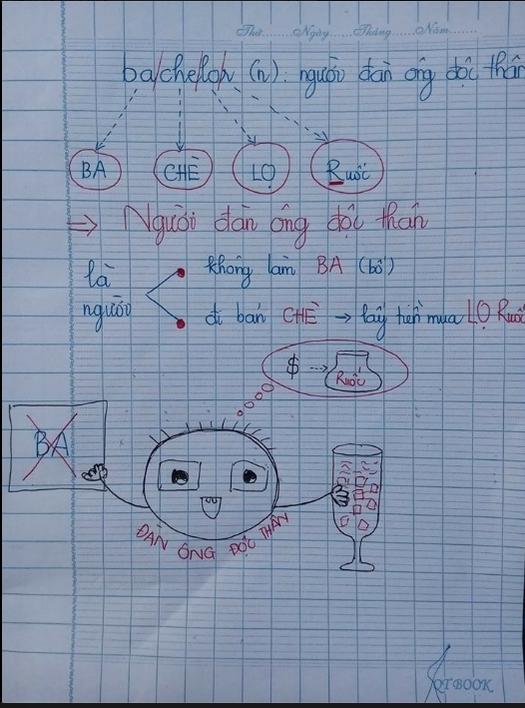 Thứ......Ngày......Tháng......Năm......
ba/che/lo/r (n): người đàn ông độc thân
BA CHÈ LỌ Ruốc
⇒ Người đàn ông độc thân
là người
• không làm BA (bố)
• đi bán CHÈ → lấy tiền mua LỌ Ruốc
$ ⇢ Ruốc
BA
ĐÀN ÔNG ĐỘC THÂN
OTBOOK